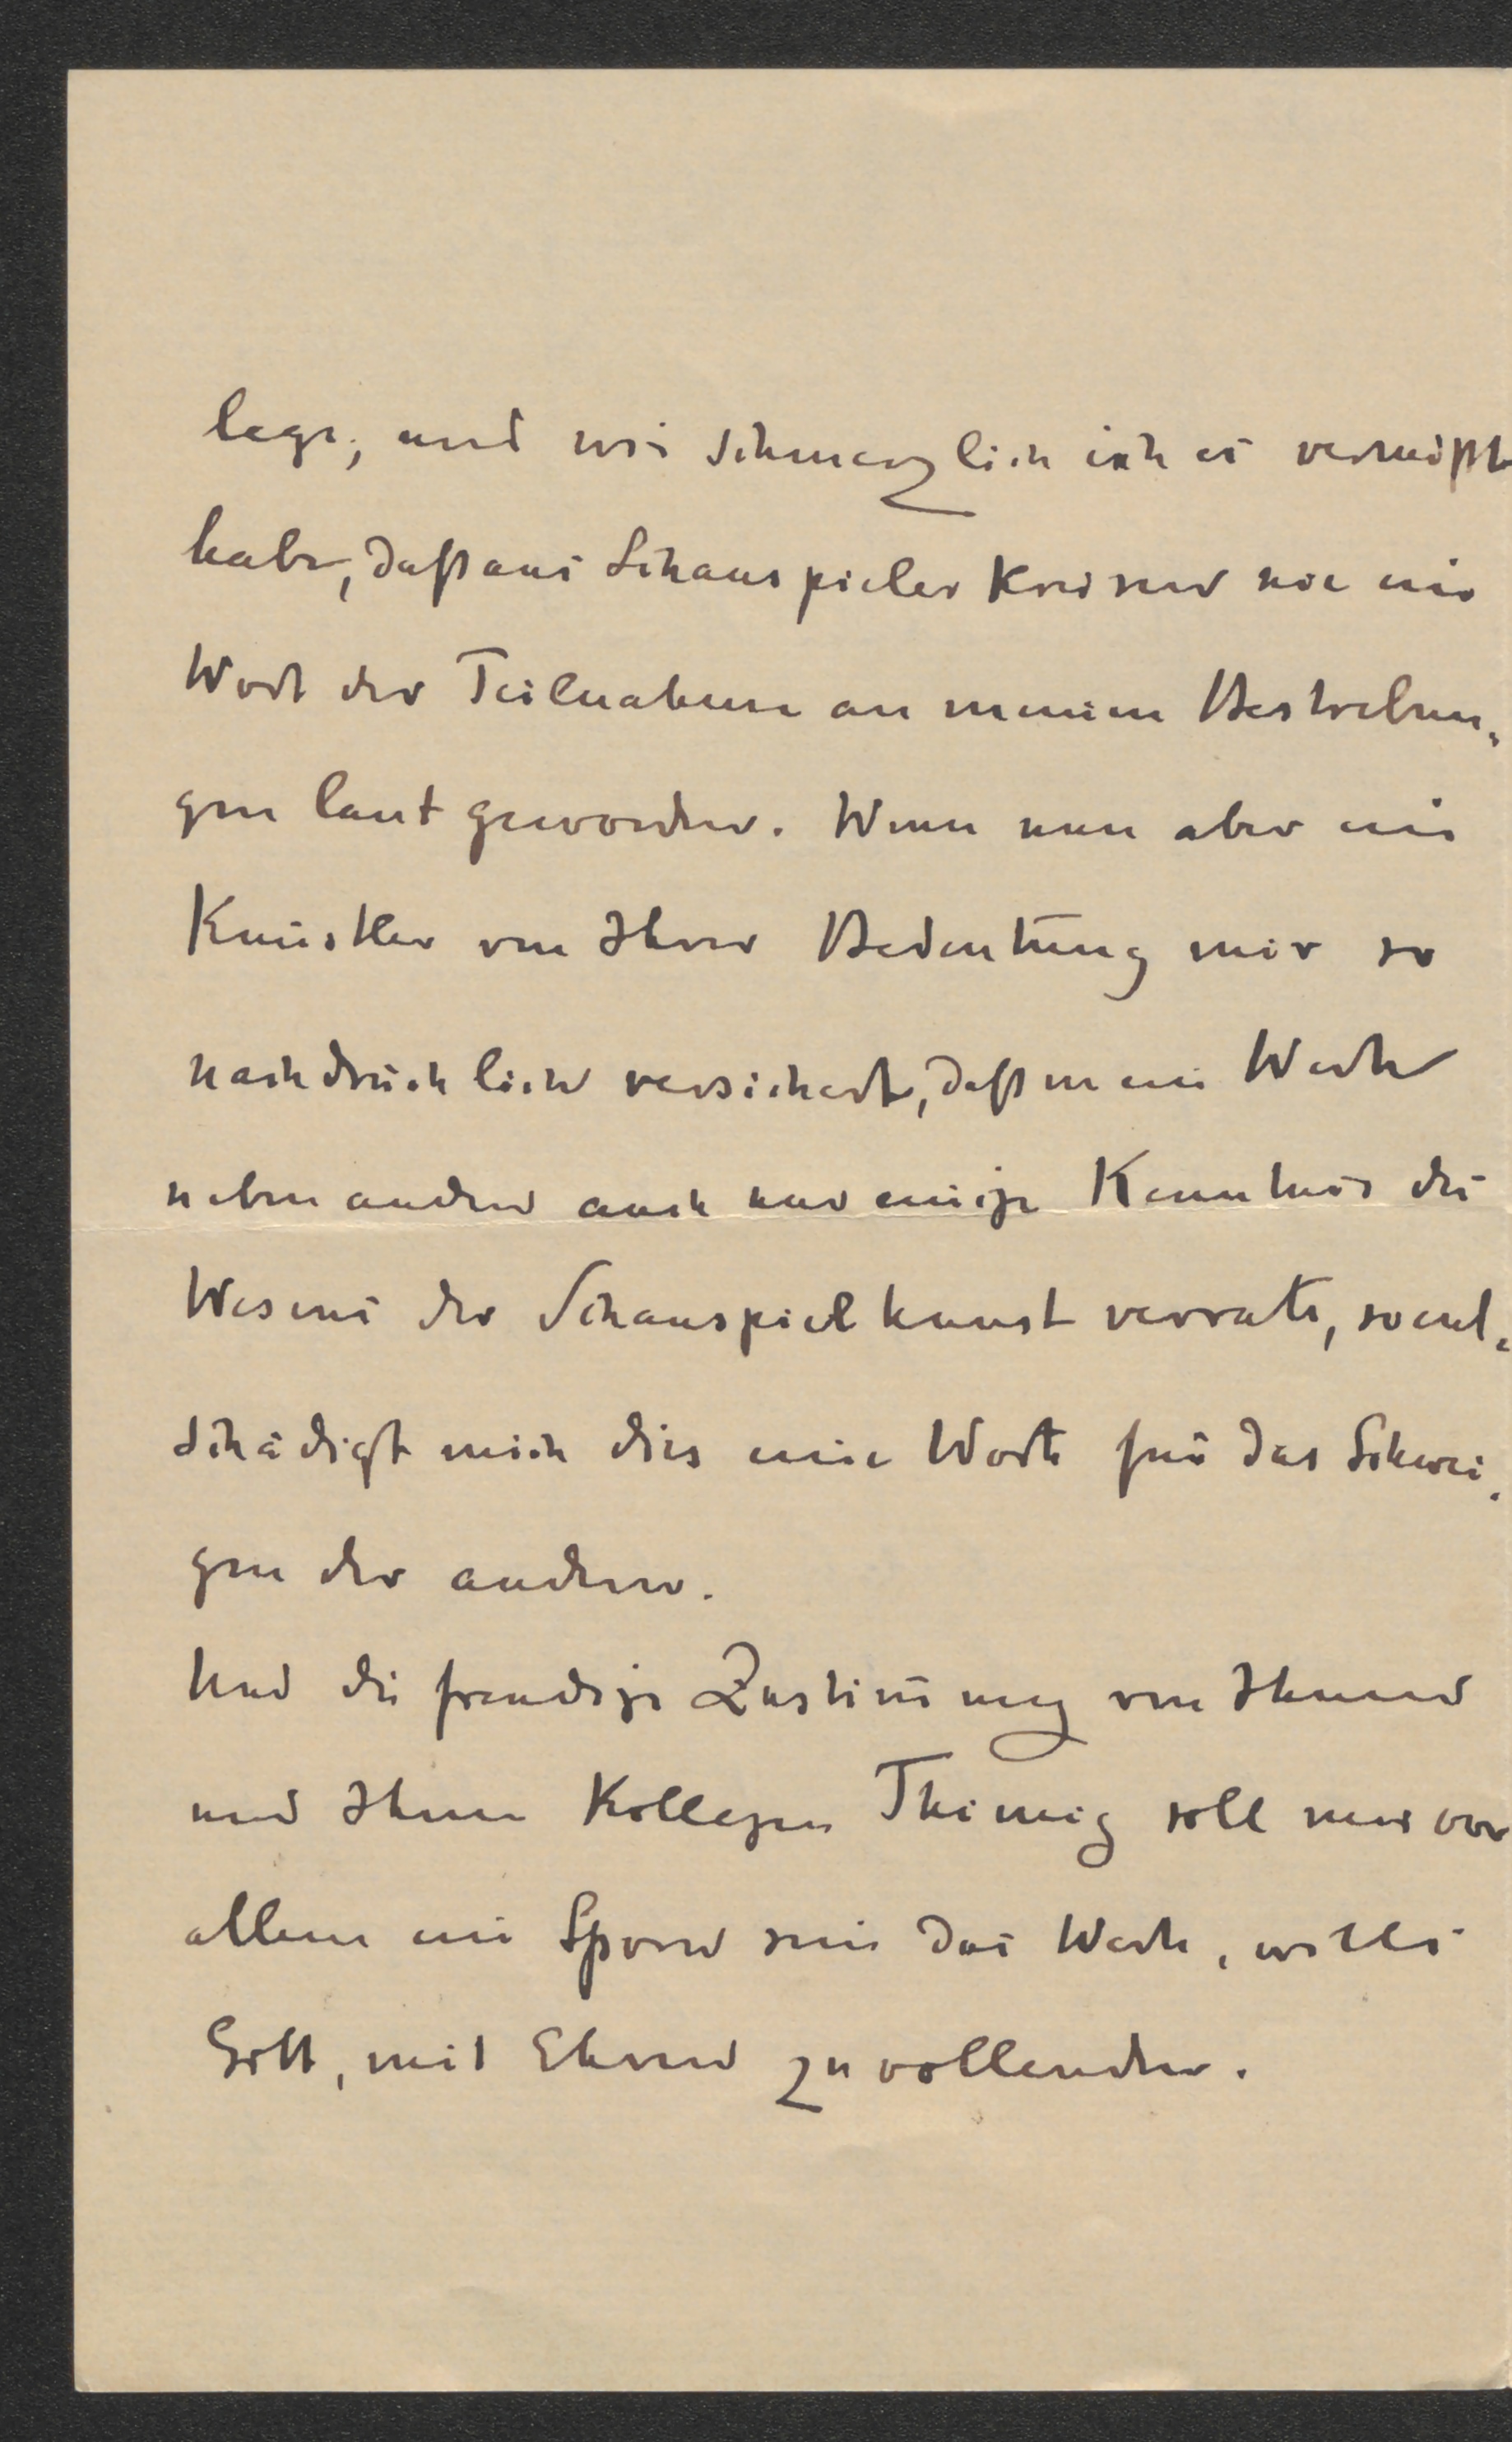 lege, und wie schmerzlich ich es vermißt
habe, daß aus Schauspieler Kreisen nie ein
Wort der Teilnahme an meinen Bestrebun-
gen laut geworden. Wenn nun aber ein
Künstler von Ihrer Bedeutung mir so
nachdrücklich versichert, daß mein Werk
neben andern auch nur einige Kenntnis des
Wesens der Schauspielkunst verrate, so ent-
schädigt mich dies eine Wort für das Schwei-
gen der andern.
Und die freudige Zustimmung von Ihnen
und Ihrem Kollegen Thimig soll mir vor
allem ein Sporn sein das Werk, wills
Gott, mit Ehren zu vollenden.